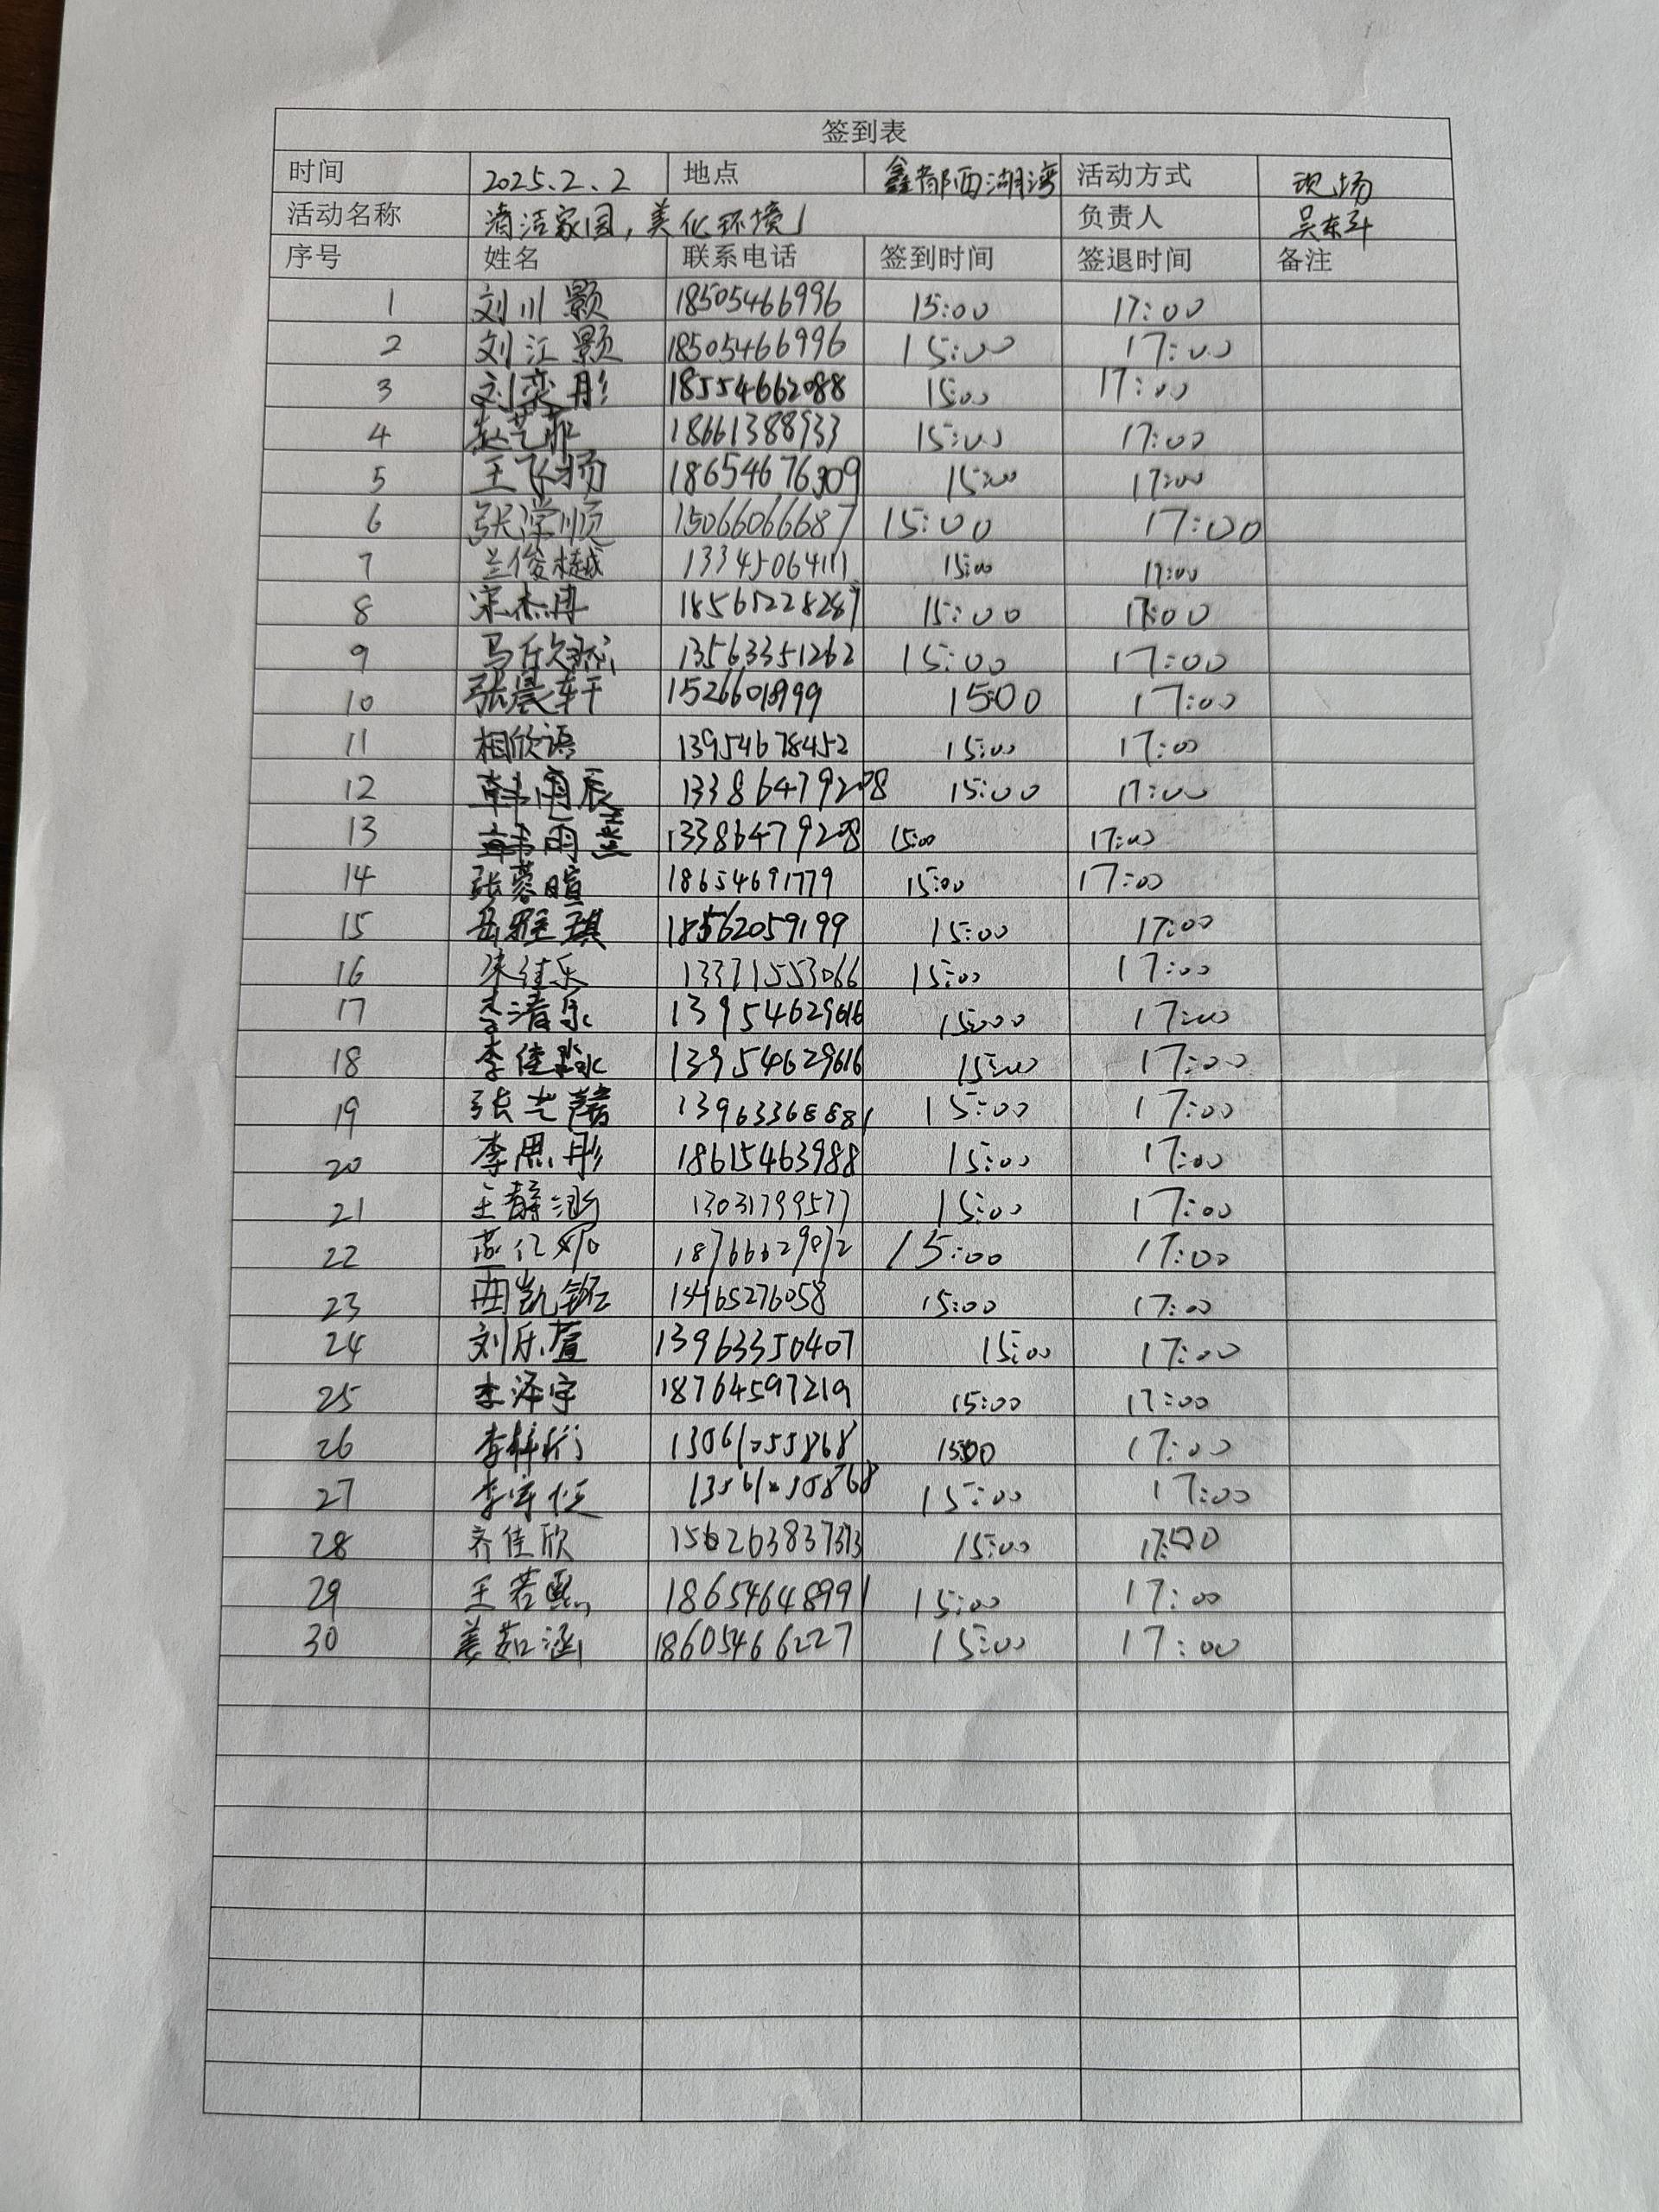 签到表
时间 2025.2.2 地点 鑫都西湖湾 活动方式 现场
活动名称 清洁家园,美化环境 负责人 吴东
序号 姓名 联系电话 签到时间 签退时间 备注
1 刘川颢 18505466996 15:00 17:00
2 刘江颢 18505466996 15:00 17:00
3 刘奕彤 18554662088 15:00 17:00
4 赵艺菲 18661388933 15:00 17:00
5 王飞扬 18654676309 15:00 17:00
6 张滢顺 15066066687 15:00 17:00
7 兰俊樾 13345064111 15:00 17:00
8 宋杰冉 18561228287 15:00 17:00
9 马 13563351262 15:00 17:00
10 张晨轩 15:00 17:00
11 相欣语 13954678452 15:00 17:00
12 韩雨辰 13386479208 15:00 17:00
13 韩雨 13386479208 15:00 17:00
14 张蓉暄 18654691779 15:00 17:00
15 岳雅琪 18562059199 15:00 17:00
16 佳乐 13371553066 15:00 17:00
17 李清泉 13954629616 15:000 17:00
18 李佳淼 13954629616 15:00 17:00
19 张艺馨 13963368881 15:00 17:00
20 李思彤 18615463988 15:00 17:00
21 王静涵 13031799577 15:00 17:00
22 15:00 17:00
23 凯 15:00 17:00
24 刘乐萱 13963350407 15:00 17:00
25 李泽宇 18764597219 15:00 17:00
26 李梓衔 15:00 17:00
27 李 15:00 17:00
28 齐佳欣 15:00 17:00
29 王若熙 18654648991 15:00 17:00
30 姜茹涵 18605466227 15:00 17:00